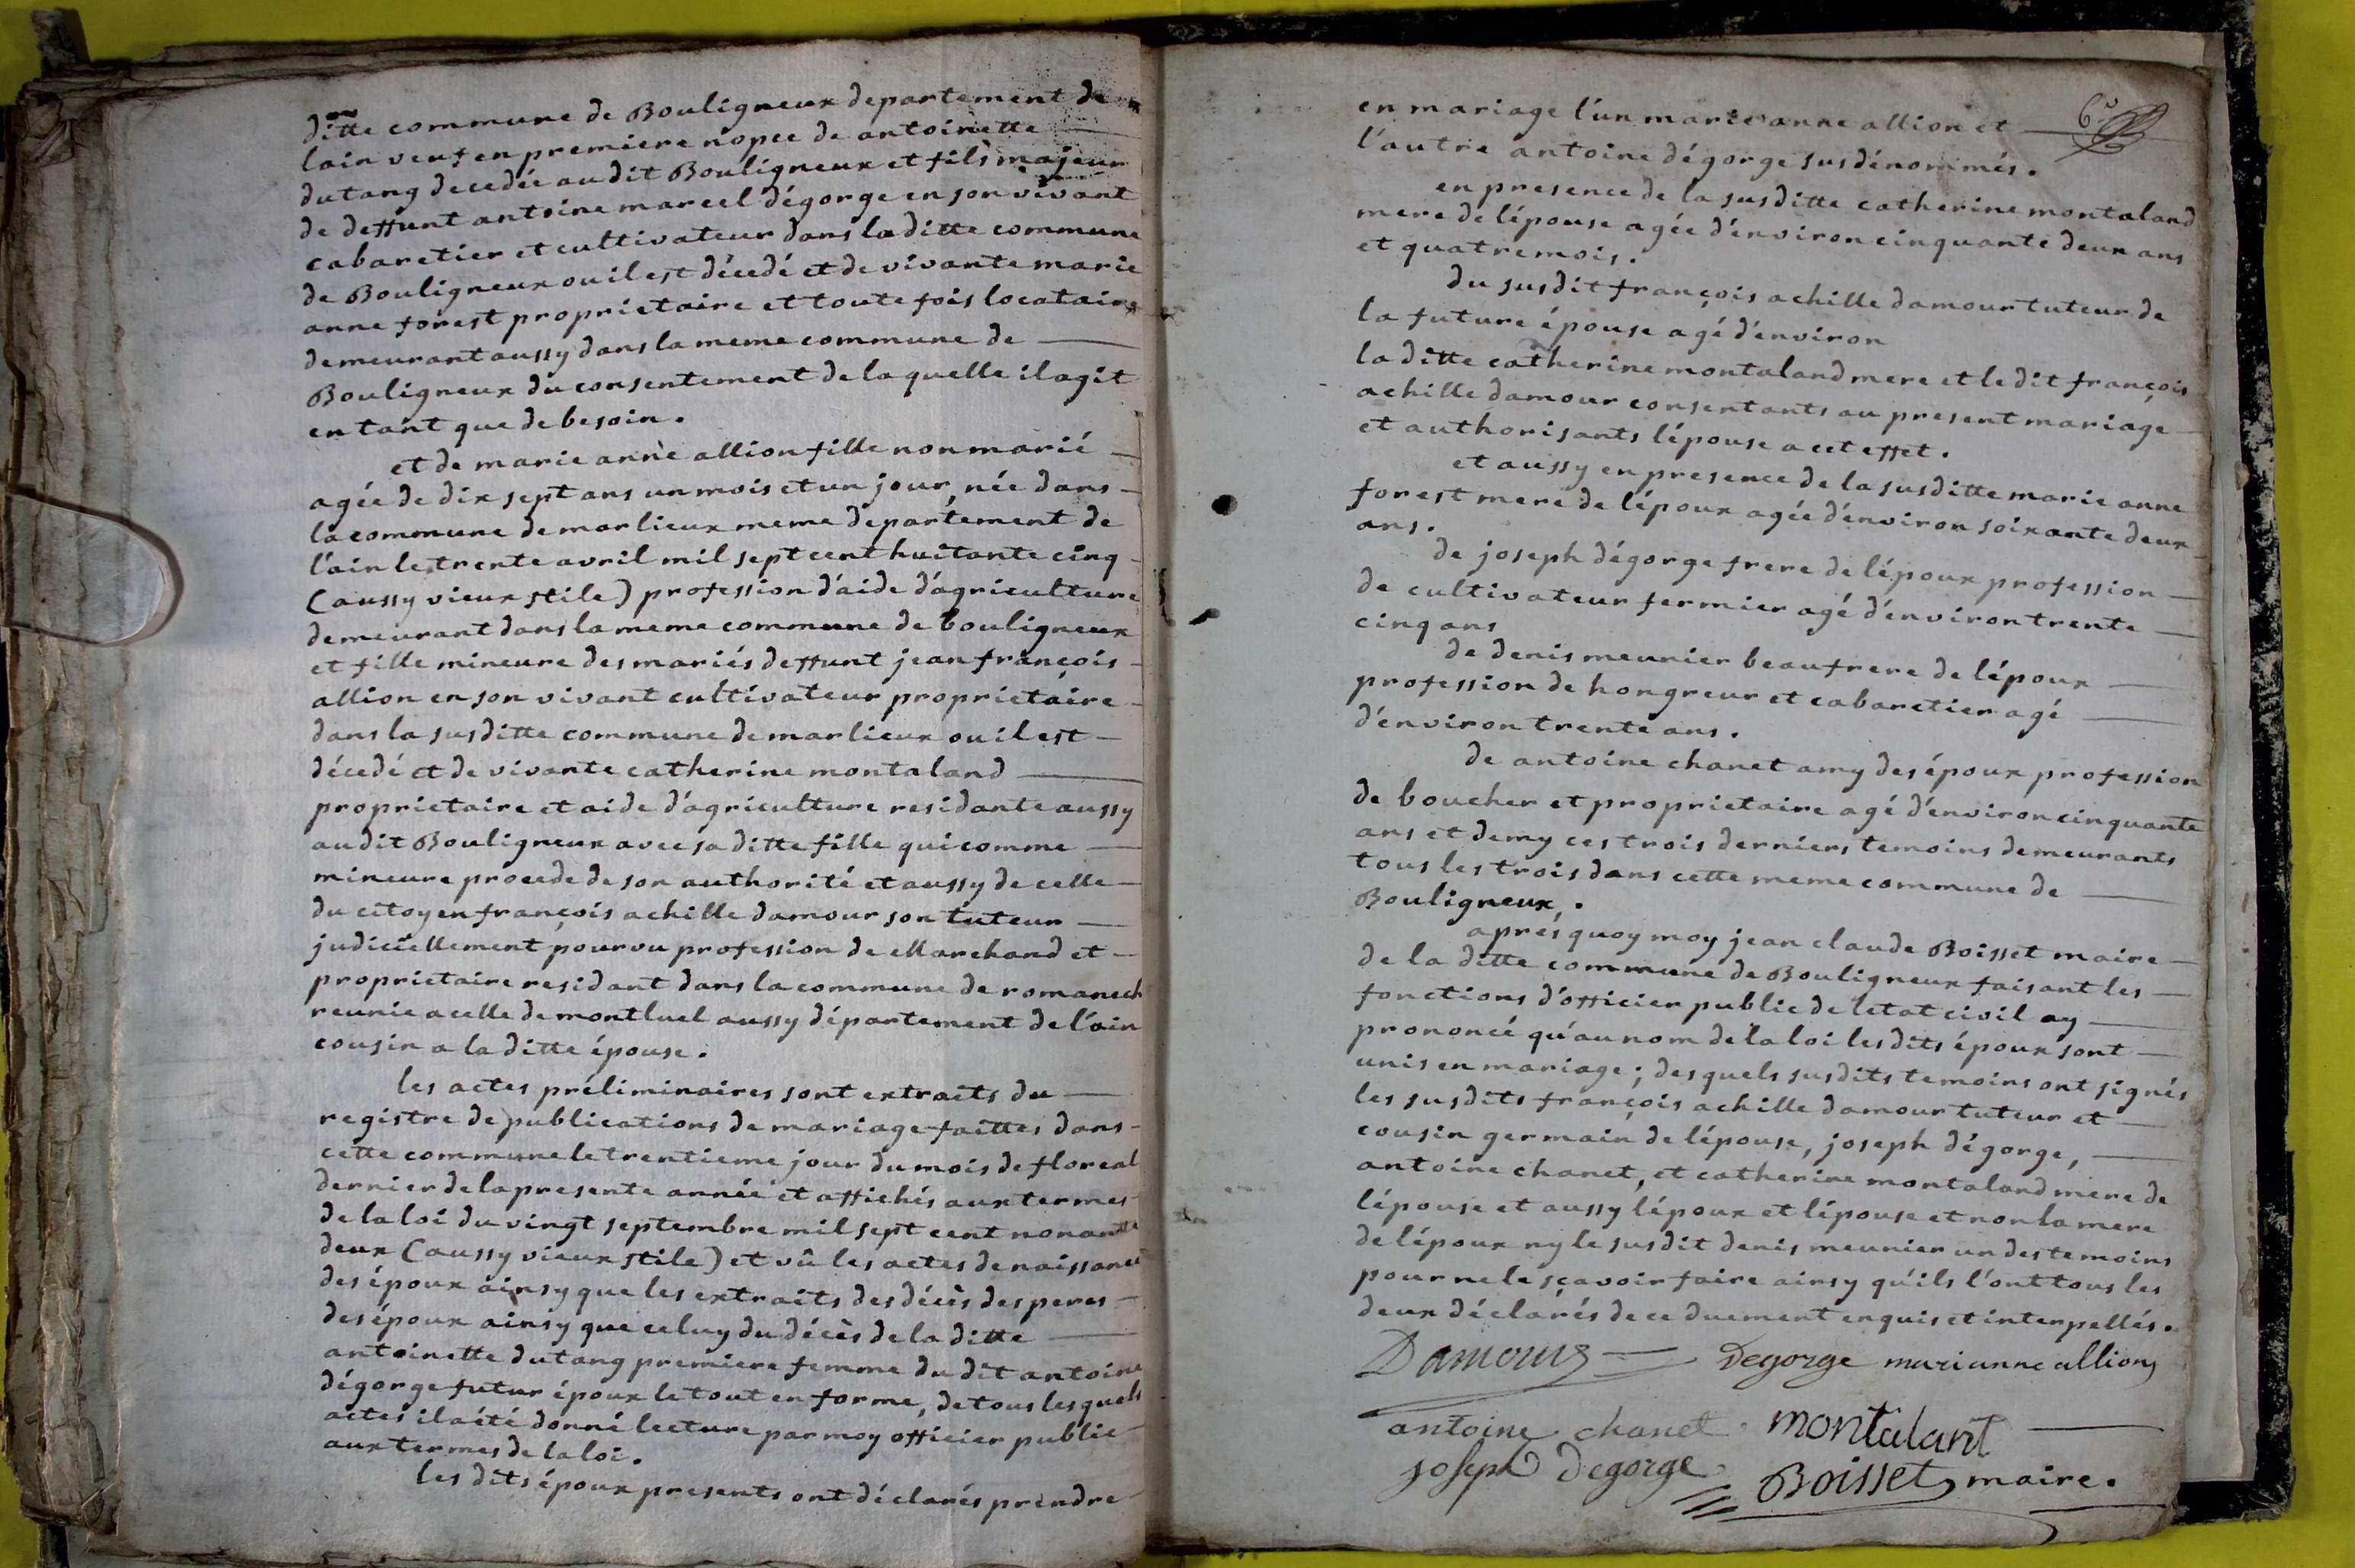 ditte commune de Bouligneux departement de
lain veuf en premiere nopce de antoinette
dutang decedée audit Bouligneux et fils majeur
de deffunt antoine marcel dégorge en son vivant
cabaretier et cultivateur dans la ditte commune
de Bouligneux ou il est décedé et de vivante marie
anne forest proprietaire et toute fois locataire
demeurant aussy dans la meme commune de
Bouligneux du consentement de la quelle il agit
en tant que de besoin.
et de marie anne allion fille non marié
agée de dix sept ans un mois et un jour, née dans
la commune de marlieux meme departement de
l'ain le trente avril mil sept cent huitante cinq
(aussy vieux stile) profession d'aide d'agriculture
demeurant dans la meme commune de bouligneux
et fille mineure des mariés deffunt jean françois
allion en son vivant cultivateur proprietaire
dans la susditte commune de marlieux ou il est
décedé et de vivante catherine montaland
proprietaire et aide d'agriculture residante aussy
audit Bouligneux avec sa ditte fille qui comme
mineure procede de son authorité et aussy de celle
du citoyen françois achille damour son tuteur
judiciellement pourvu profession de Marchand et
proprietaire residant dans la commune de romanech
reunie a celle de montluel aussy département de l'ain
cousin a la ditte épouse.
les actes préliminaires sont extraits du
registre de publications de mariage faittes dans
cette commune le trentieme jour du mois de floreal
dernier de la presente année et affichés aux termes
de la loi du vingt septembre mil sept cent nonante
deux (aussy vieux stile) et vû les actes de naissance
des époux ainsy que les extraits des décès des peres
des époux ainsy que celuy du décès de la ditte
antoinette dutang premiere femme du dit antoine
dégorge futur époux le tout en forme, de tous lesquels
actes il a été donné lecture par moy officier public
aux termes de la loi.
les dits époux presents ont déclarés prendre
6e
en mariage l'un marie anne allion et
l'autre antoine dégorge susdénommés.
en presence de la susditte catherine montaland
mere de lépouse agée d'environ cinquante deux ans
et quatre mois.
du susdit françois achille damour tuteur de
la future épouse agé d'environ
la ditte catherine montaland mere et le dit françois
achille damour consentants au present mariage
et authorisants lépouse a cet effet.
et aussy en presence de la susditte marie anne
forest mere de lépoux agée d'environ soixante deux
ans.
de joseph dégorge frere de lépoux profession
de cultivateur fermier agé d'environ trente
cinq ans
de denis meunier beaufrere de lépoux
profession de hongreur et cabaretier agé
d'environ trente ans.
de antoine chanet amy des époux profession
de boucher et proprietaire agé d'environ cinquante
ans et demy ces trois derniers temoins demeurants
tous les trois dans cette meme commune de
Bouligneux.
aprés quoy moy jean claude Boisset maire
de la ditte commune de Bouligneux faisant les
fonctions d'officier public de letat civil ay
prononcé qu'au nom de la loi les dits époux sont
unis en mariage; desquels susdits temoins ont signés
les susdits françois achille damour tuteur et
cousin germain de lépouse, joseph dégorge,
antoine chanet, et catherine montaland mere de
lépouse et aussy lépoux et lépouse et non la mere
de lépoux ny le susdit denis meunier un des temoins
pour ne le sçavoir faire ainsy qu'ils l'ont tous les
deux déclarés de ce duement enquis et interpellés.
Damour Degorge marianne allion
antoine chanet montalant
joseph Degorge Boisset maire.